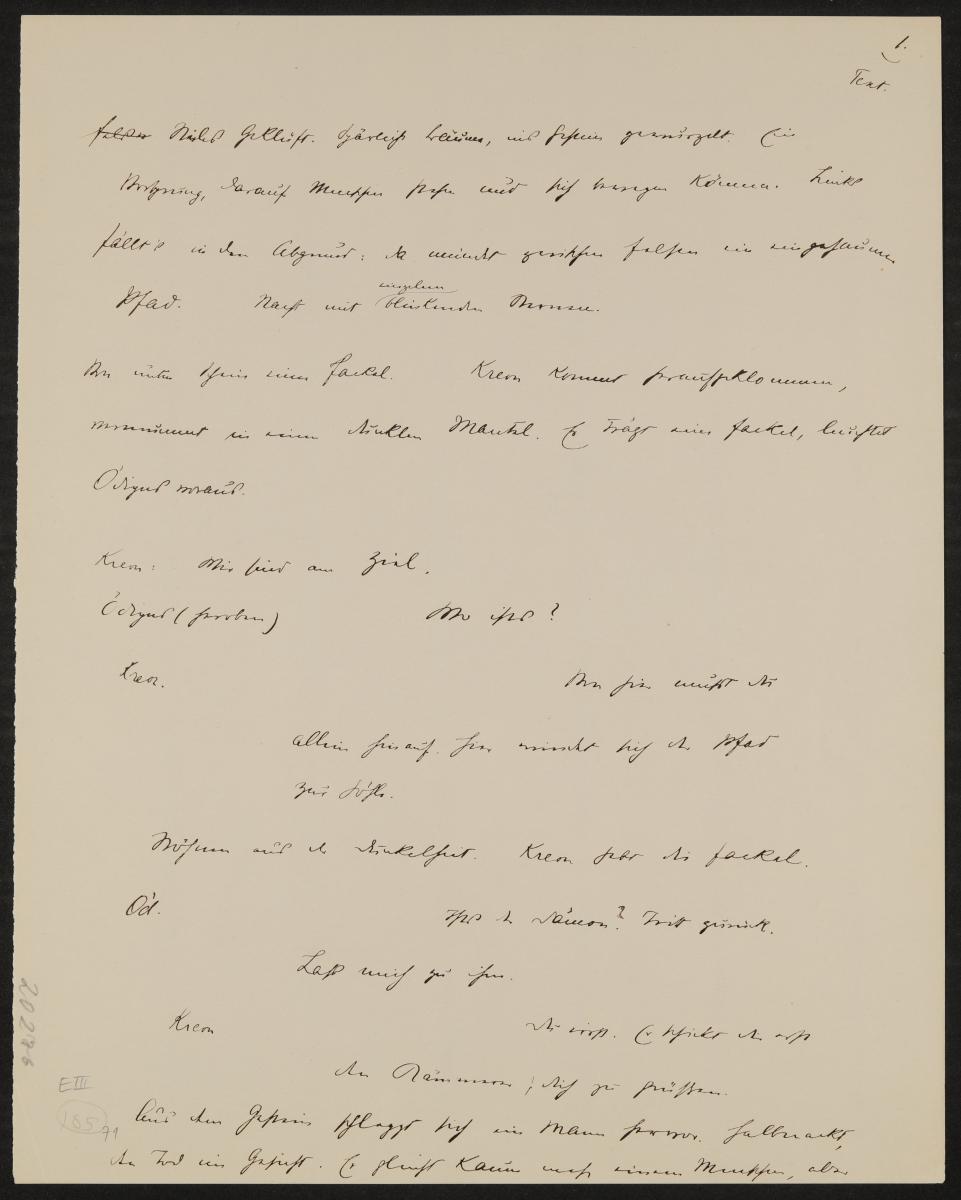 1.
Text.
Felsen Steiles Geklüft. Spärliche Bäume, ins Gestein gewurzelt. Ein
Vorsprung, darauf Menschen stehen und sich bewegen können. Links
fällt's in den Abgrund: da mündet zwischen Felsen ein eingehauener
einzelnen
Pfad. Nacht mit blinkenden Sternen.
Von unten Schein einer Fackel. Kreon kommt heraufgeklommen,
vermummt in einen dunklen Mantel. Er trägt eine Fackel, leuchtet
Ödipus voraus.
Kreon: Wir sind am Ziel.
Ödipus (hervor) Wo ists?
Kreon. Von hier mußt du
allein hinauf. Hier windet sich der Pfad
zur Höhle.
Stöhnen aus der Dunkelheit. Kreon hebt die Fackel.
Öd. Ists der Dämon? Tritt zurück.
Laß mich zu ihm.
Kreon Du irrst. Er schickt dir erst
den Dämmerer, dich zu grüßen.
Aus dem Gestein schleppt sich ein Mann hervor. Halbnackt,
den Tod im Gesicht. Er gleicht kaum mehr einem Menschen, aber
20278
EIII
165
71